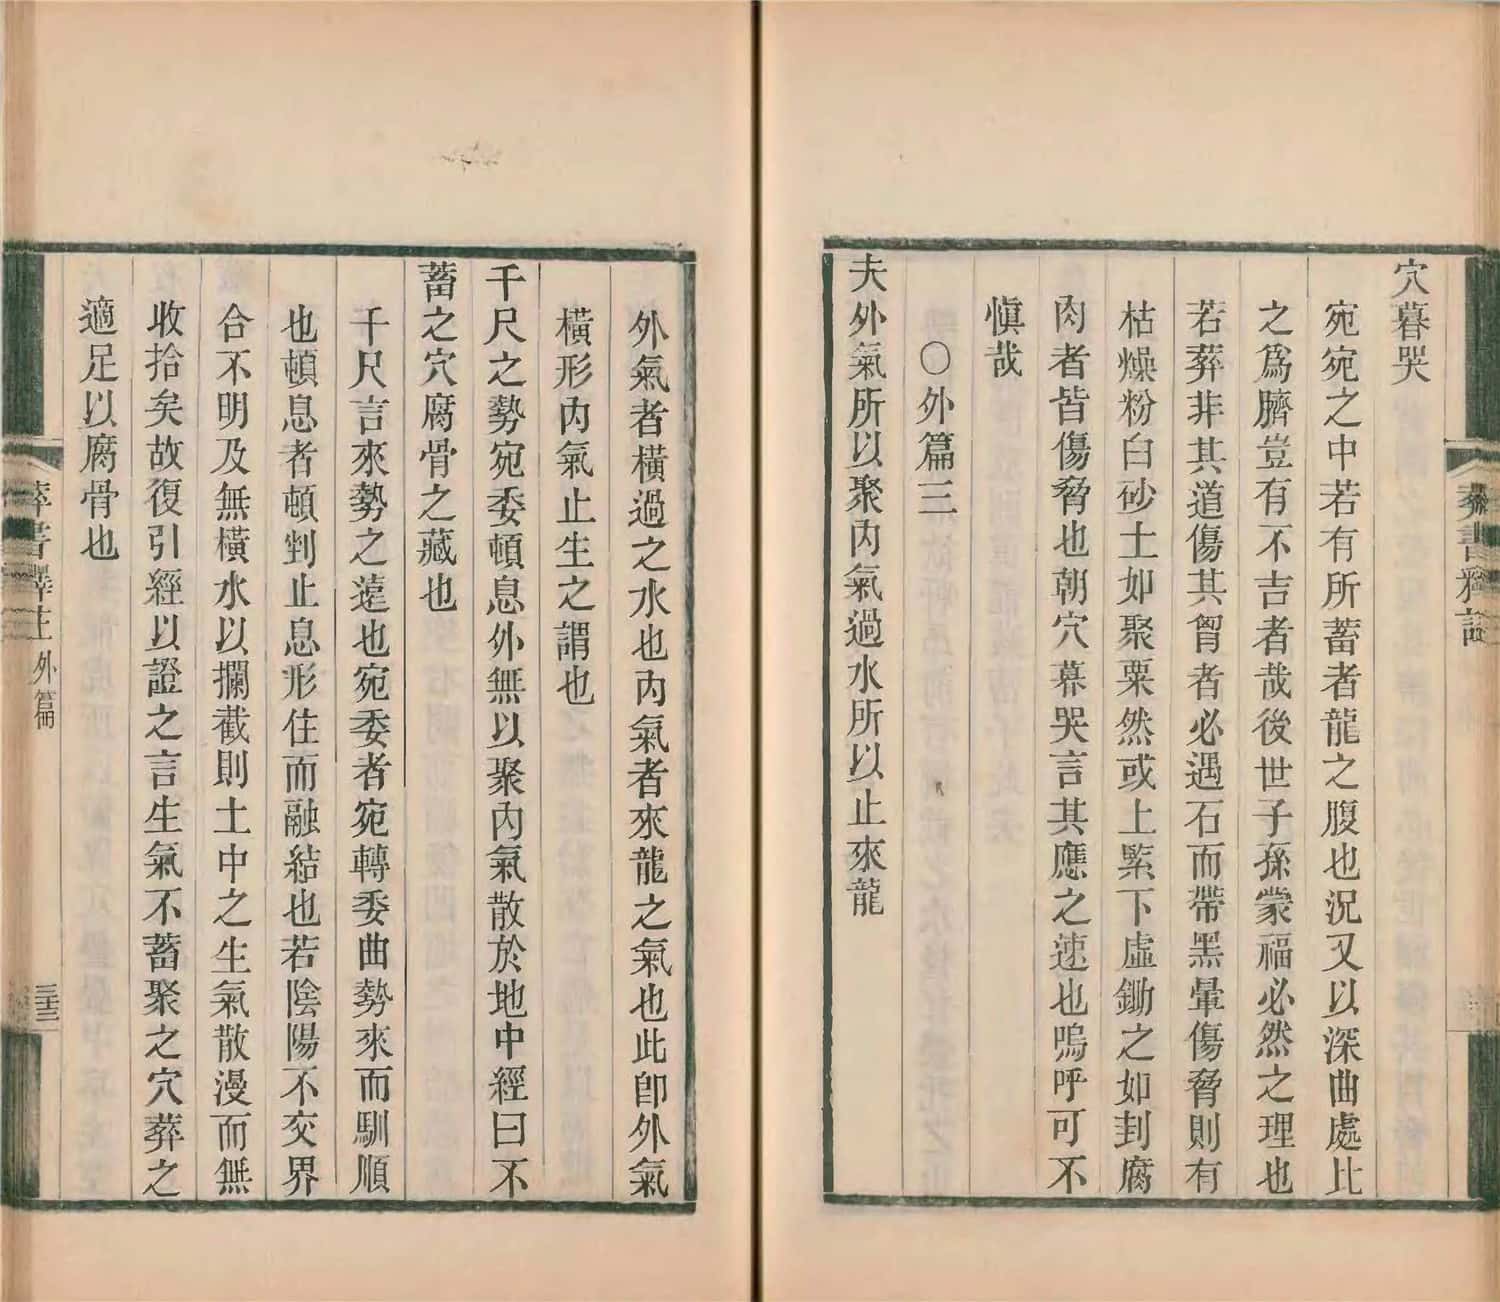 穴暮哭
宛宛之中若有所蓄者龍之腹也況又以深曲處比
之爲臍豈有不吉者哉後世子孫蒙福必然之理也
若葬非其道傷其胷者必遇石而帶黑暈傷脅則有
枯燥粉白砂土如聚粟然或上緊下虛鋤之如刲腐
肉者皆傷脅也朝穴暮哭言其應之速也嗚呼可不
愼哉
○外篇三
夫外氣所以聚內氣過水所以止來龍
外氣者橫過之水也內氣者來龍之氣也此卽外氣
橫形內氣止生之謂也
千尺之勢宛委頓息外無以聚內氣散於地中經曰不
蓄之穴腐骨之藏也
千尺言來勢之遠也宛委者宛轉委曲勢來而馴順
也頓息者頓剉止息形住而融結也若陰陽不交界
合不明及無橫水以攔截則土中之生氣散漫而無
收拾矣故復引經以證之言生氣不蓄聚之穴葬之
適足以腐骨也
葬書釋注
外篇
三十三